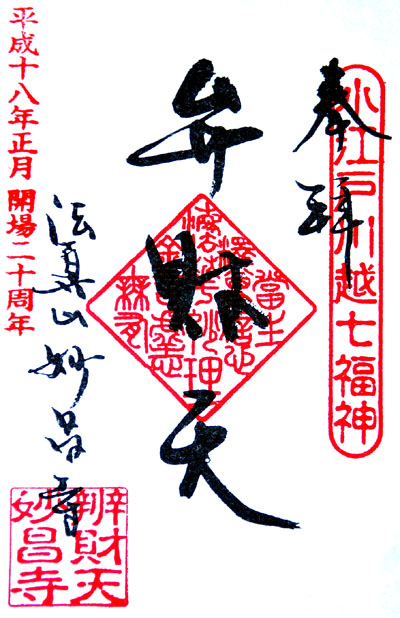 奉拝
小江戸川越七福神
弁財天
法眞山妙昌寺
辨財天
妙昌寺
平成十八年正月 開場二十周年